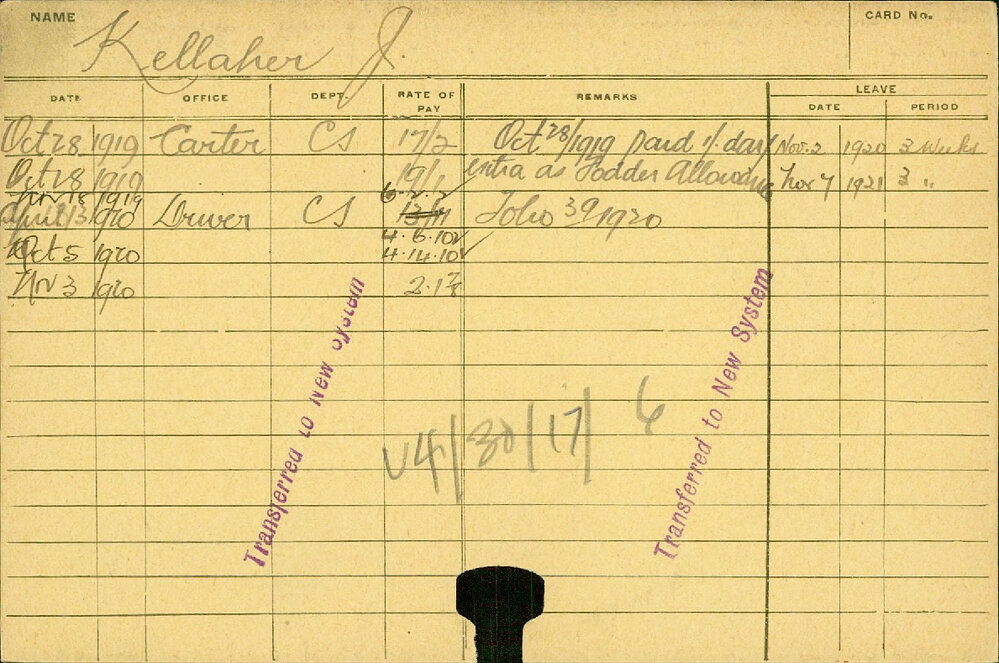 NAME
Kellaher J.
CARD No.
DATE OFFICE DEPT. RATE OF PAY REMARKS LEAVE
DATE PERIOD
Oct 28 1919 Carter CS 17/2 Oct 28/1919 paid 1/ day Nov. 2 1920 3 Weeks
Oct 28 1919 19/1 extra as Fodder Allowance Nov 7 1921 3 "
Nov 18 1919
April 13 1920 Driver CS Folio 39 1920
4.6.10
Oct 5 1920 4.14.10
Nov 3 1920 2.1
Transferred to New System
Transferred to New System
U4/30/17/ 6